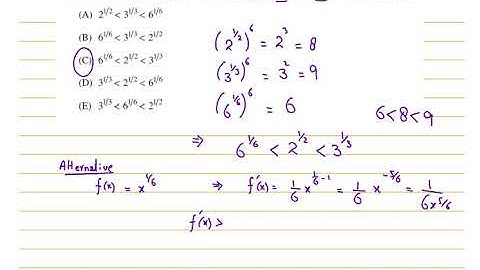 (A) 2^{1/2} < 3^{1/3} < 6^{1/6}
(B) 6^{1/6} < 3^{1/3} < 2^{1/2}
(C) 6^{1/6} < 2^{1/2} < 3^{1/3}
(D) 3^{1/3} < 2^{1/2} < 6^{1/6}
(E) 3^{1/3} < 6^{1/6} < 2^{1/2}
(2^{1/2})^6 = 2^3 = 8
(3^{1/3})^6 = 3^2 = 9
(6^{1/6})^6 = 6
6 < 8 < 9
⇒ 6^{1/6} < 2^{1/2} < 3^{1/3}
Alternative
f(x) = x^{1/6} ⇒ f'(x) = 1/6 x^{1/6 - 1} = 1/6 x^{-5/6} = 1/(6x^{5/6})
f'(x) >